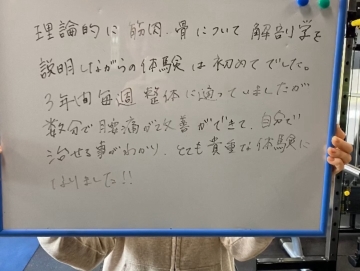 理論的に筋肉、骨について解剖学で
説明しながらの体験は初めてでした。
3年間毎週整体に通っていましたが
数分で腰痛が改善ができて、自分で
治せる事がわかり、とても貴重な体験に
なりました!!